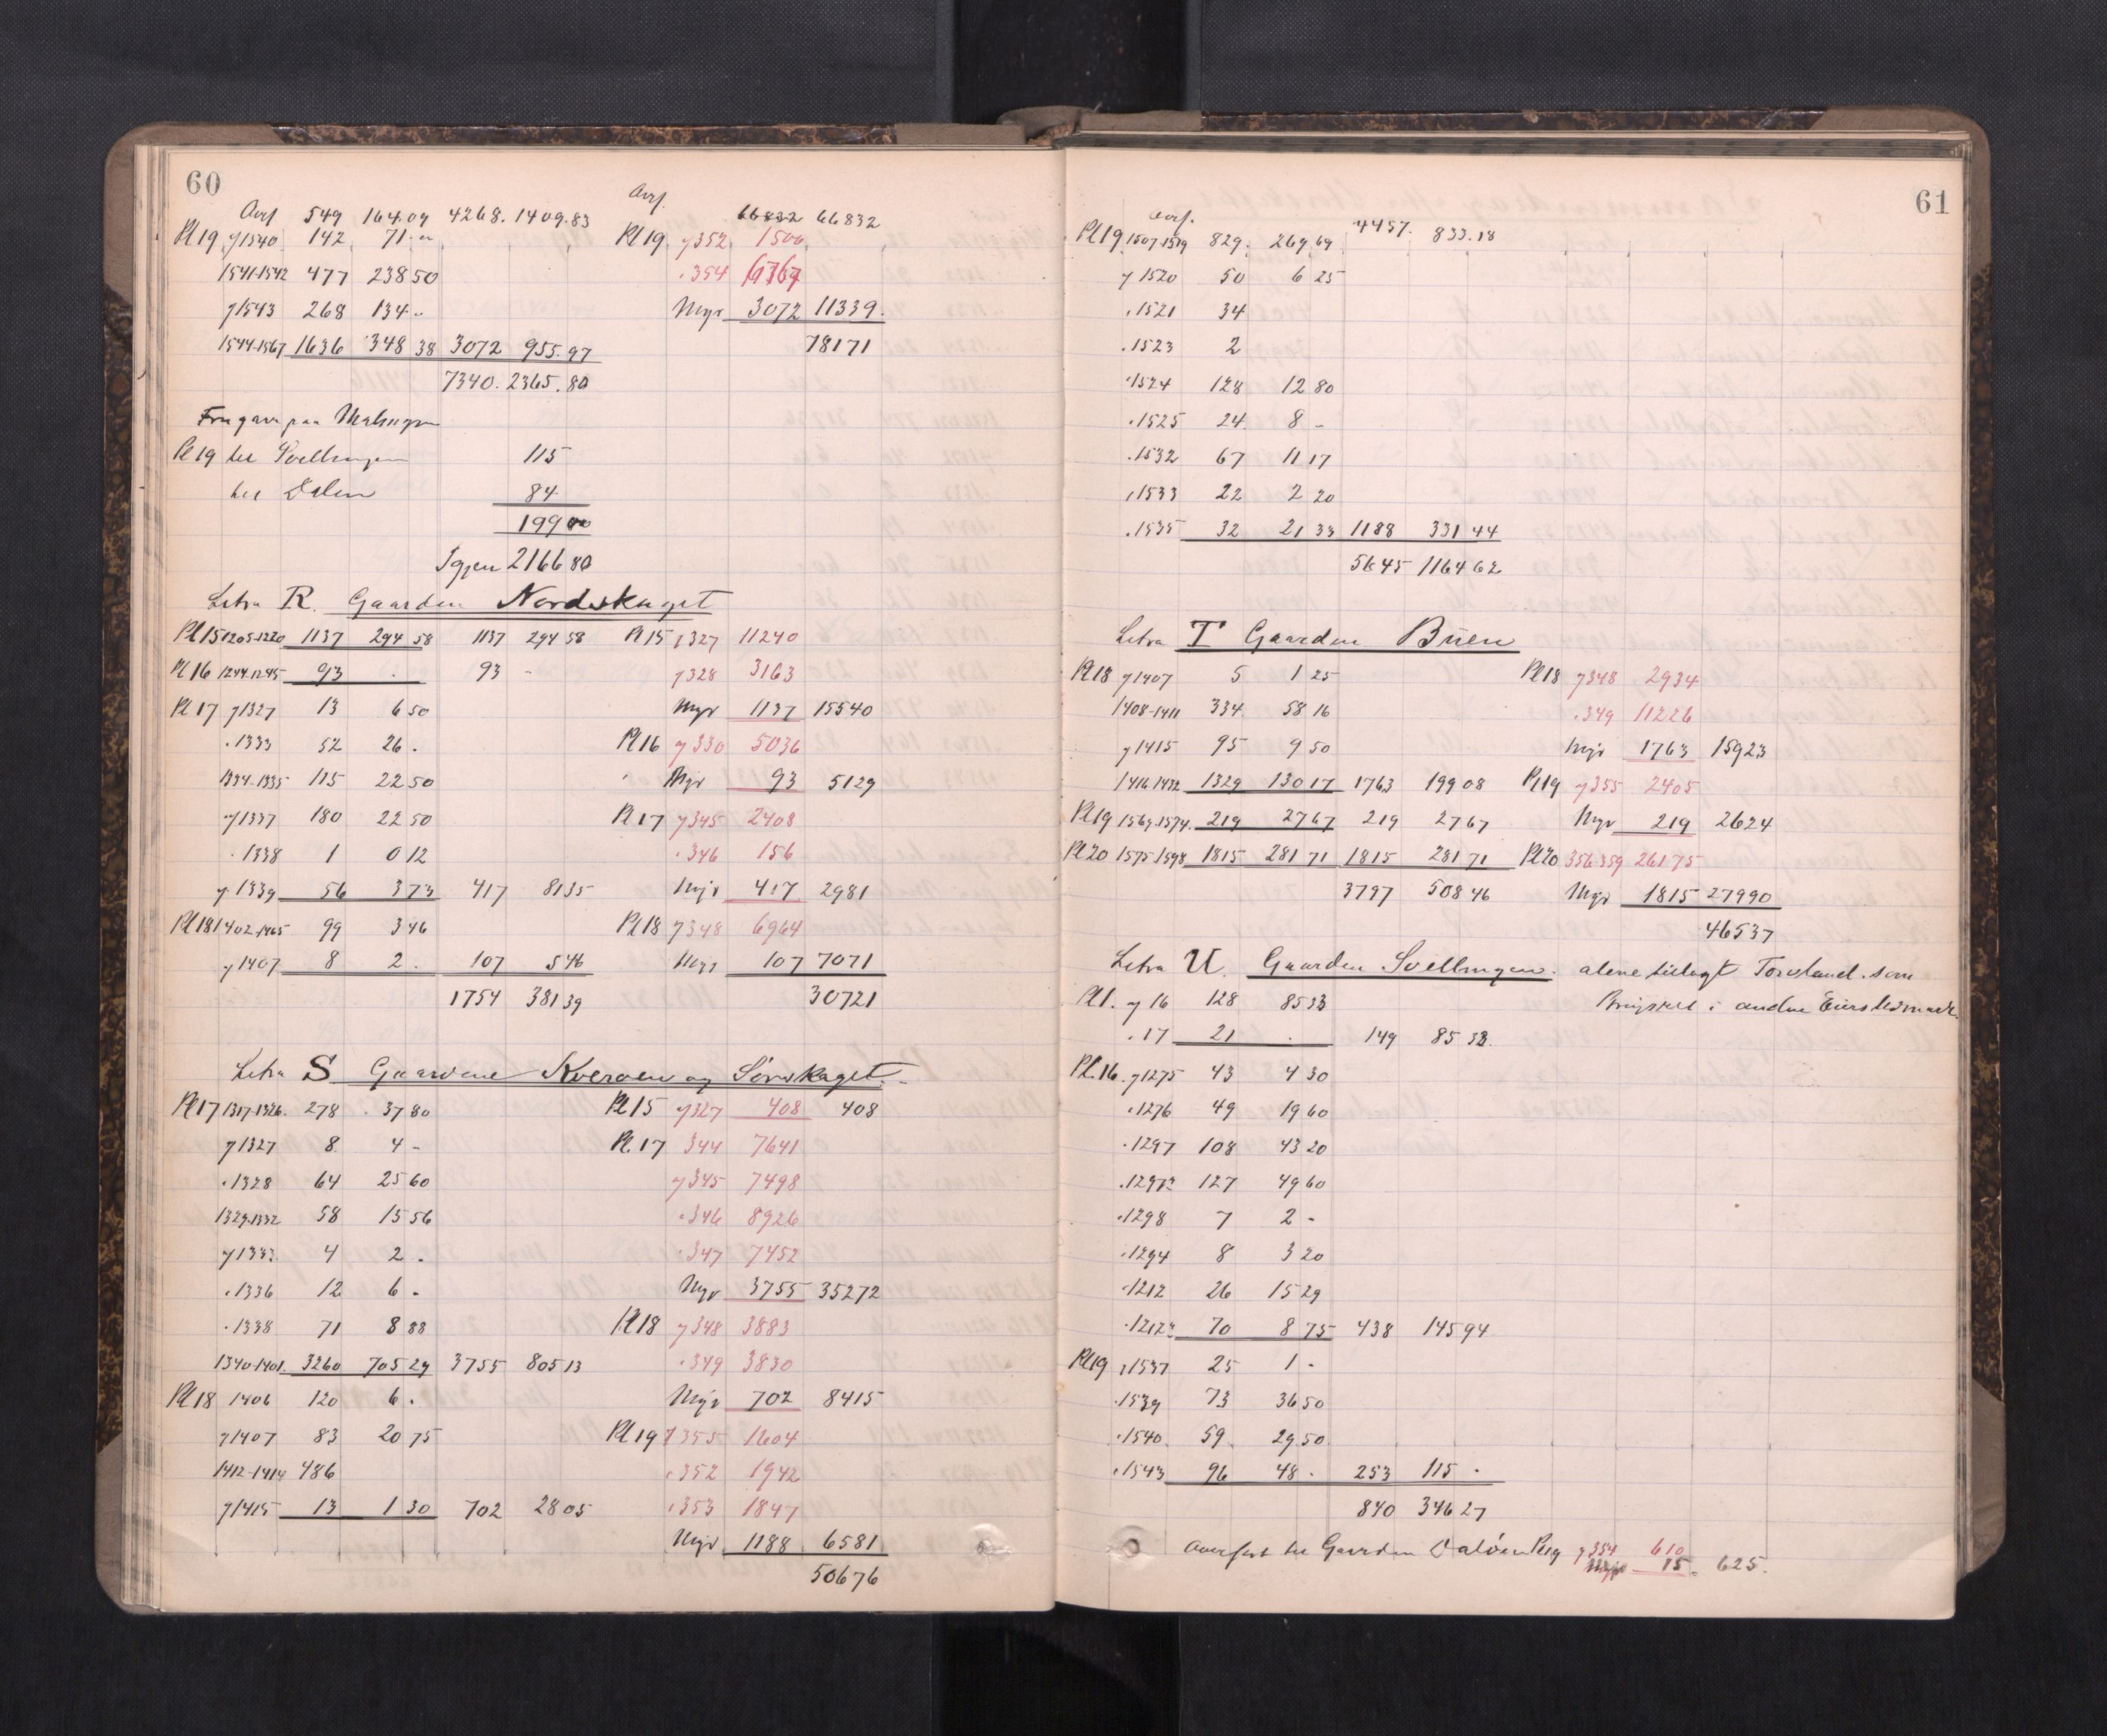 60
Ovrf 549 164.09 4268. 1409.83 Ovrf. 66832 66832
Pl 19 γ1540 142 71.- Pl 19 γ352 1500
1541-1542 477 238 50 .354 6767
γ1543 268 134 - Myr 3072 11339.
1544-1567 1636 348 38 3072 955.97 78171
7340. 2365.80
Fragaar paa
Pl 19 til Svellingen 115
til Dalen 84
199 00
Igjen 2166 80
Letra R. Gaarden Nordskaget
Pl 15 1205-1220 1137 294 58 1137 294 58 Pl 15 γ327 11240
Pl 16 1244.1245 93 . 93 - γ328 3163
Pl 17 γ1327 13 6 50 Myr 1137 15540
.1333 52 26 . Pl 16 γ330 5036
1334-1335 115 22 50 Myr 93 5129
γ1337 180 22 50 Pl 17 γ345 2408
.1338 1 0 12 .346 156
γ1339 56 3 73 417 81 35 Myr 417 2981
Pl 18 1402-1405 99 3 46 Pl 18 γ348 6964
γ1407 8 2 . 107 5 46 Myr 107 7071
1754 381 39 30721
Letra S Gaardene Kverøen og Sørskaget.
Pl 17 1317-1326. 278 37 80 Pl 15 γ327 408 408
γ1327 8 4 - Pl. 17 344 7641
.1328 64 25 60 γ345 7498
1329-1332 58 15 56 .346 8926
γ1333 4 2 . .347 7452
.1336 12 6 . Myr 3755 35272
.1338 71 8 88 Pl 18 γ348 3883
1340-1401 3260 705 29 3755 805 13 .349 3830
Pl 18 1406 120 6 . Myr 702 8415
γ1407 83 20 75 Pl 19 γ355 1604
1412-1414 486 .352 1942
γ1415 13 1 30 702 28 05 .353 1847
Myr 1188 6581
50676
61
Ovrf.
Pl 19 1507-1519 829. 269 69 4457. 833.18
γ 1520 50 6 25
.1521 34
.1523 2
.1524 128 12 80
.1525 24 8 -
.1532 67 11 17
.1533 22 2 20
.1535 32 21 33 1188 331 44
5645 1164 62
Letra T Gaarden Buen
Pl 18 γ1407 5 1 25 Pl 18 γ348 2934
1408-1411 334 58 16 .349 11226
γ1415 95 9 50 Myr 1763 15923
1416-1432 1329 130 17 1763 199 08 Pl 19 γ355 2405
Pl 19 1569-1574. 219 27 67 219 27 67 Myr 219 2624
Pl 20 1575-1598 1815 281 71 1815 281 71 Pl 20 356-359 26175
3797 508 46 Myr 1815 27990
46537
Letra U. Gaarden Svellingen. alene tillagt Torvland. som
Pl 1. γ 16 128 85 33 Brugsret i andre Eiers Udmark.
.17 21 . 149 85 33.
Pl. 16. γ1275 43 4 30
.1276 49 19 60
.1297 108 43 20
.1297² 127 49 60
.1298 7 2 -
.1294 8 3 20
.1212 26 15 29
.1212² 70 8 75 438 145 94
Pl 19 γ1537 25 1 -
.1539 73 36 50
.1540. 59. 29 50
.1543 96 48 . 253 115 .
840 346 27
Overført til Gaarden Daløen Pl 19 γ354 610
Myr 15. 625.